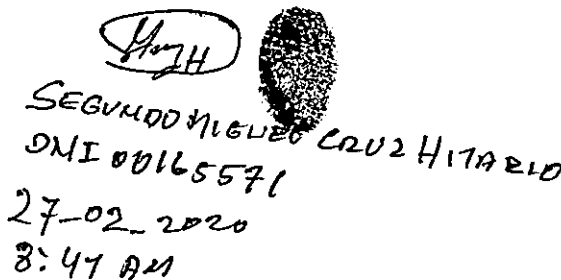 SEGUNDO MIGUEL CRUZ HITARIO
DNI 00165571
27-02-2020
8:47 AM